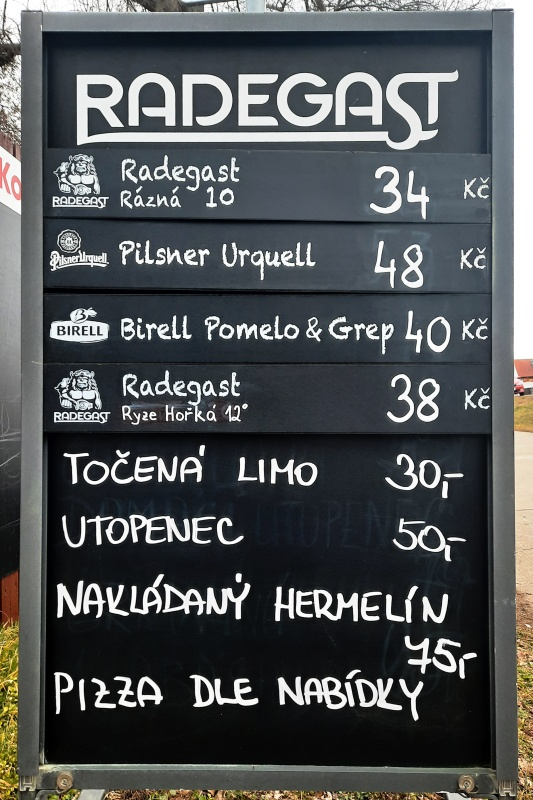 RADEGAST
RADEGAST Radegast
Rázná 10 34 Kč
Pilsner Urquell Pilsner Urquell 48 Kč
BIRELL Birell Pomelo & Grep 40 Kč
RADEGAST Radegast
Ryze Hořká 12° 38 Kč
TOČENÁ LIMO 30,-
UTOPENEC 50,-
NAKLÁDANÝ HERMELÍN
75,-
PIZZA DLE NABÍDKY
Ko